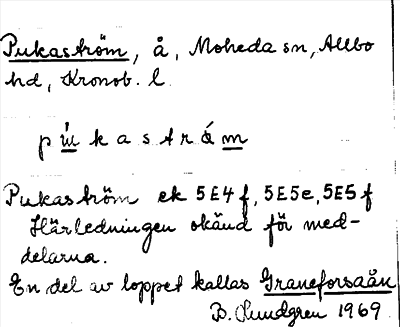 Pukaström, å, Moheda sn, Allbo
hd, Kronob. l.
pu̇́kastrȧ́m
Pukaström ek 5E4f, 5E5e, 5E5f
Härledningen okänd för med-
delarna.
En del av loppet kallas Graneforsaån
B. Lundgren 1969.